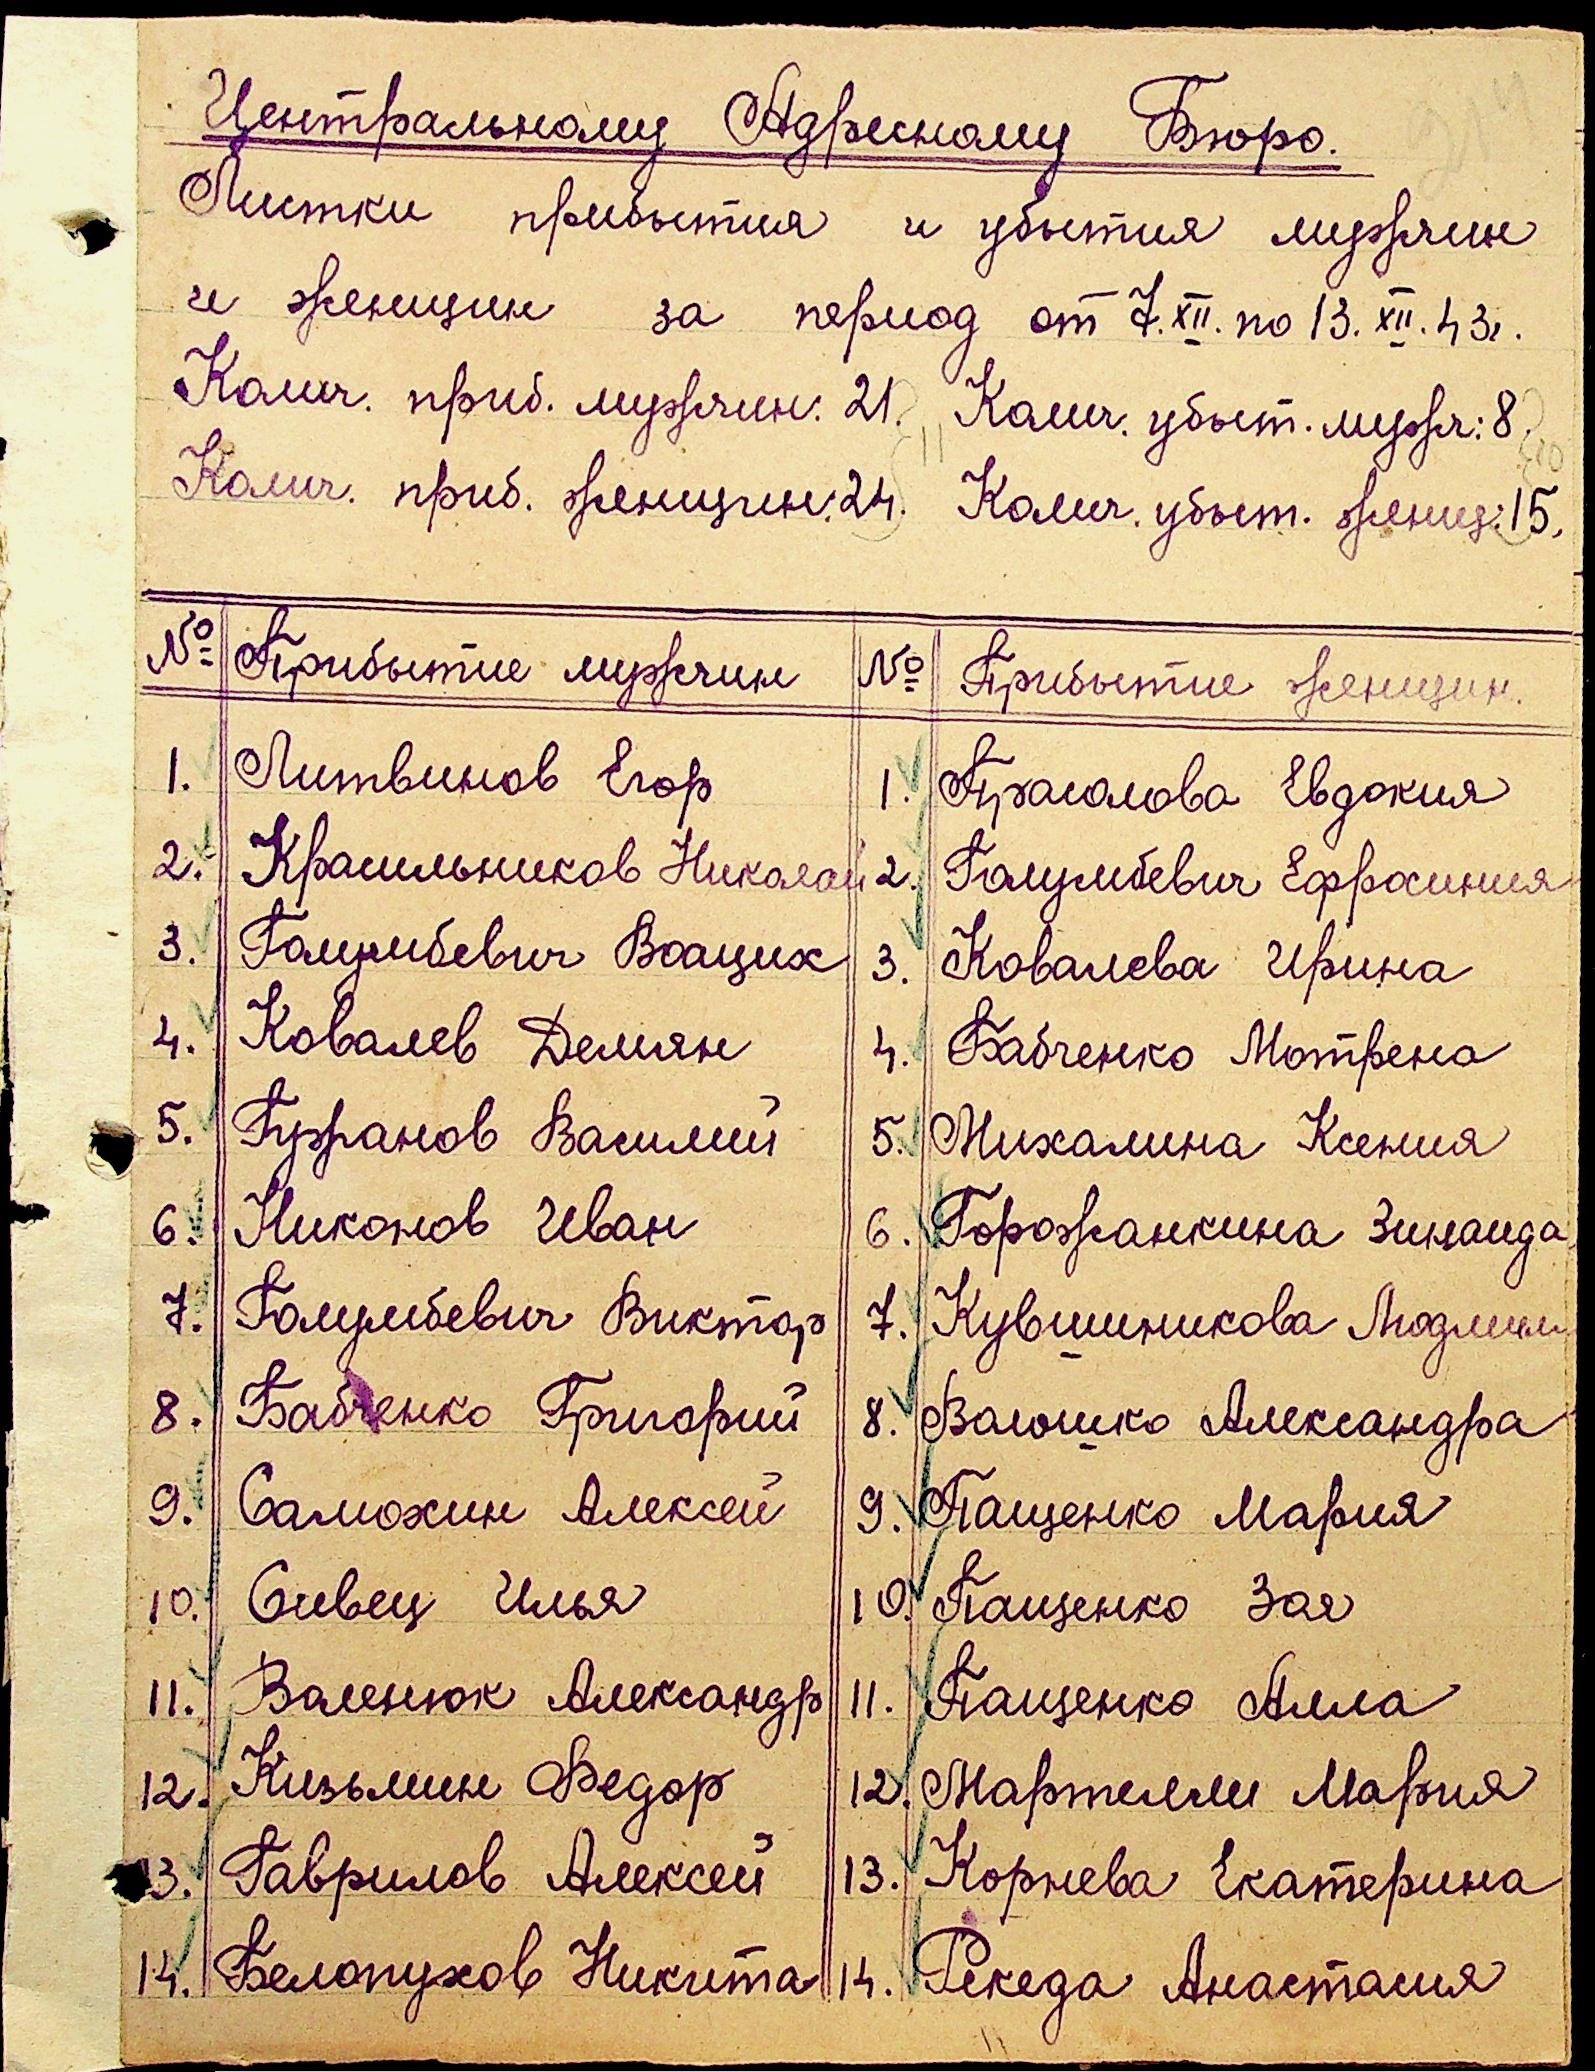 Центральному Адресному Бюро.
Листки прибытия и убытия мужчин
и женщин за период от 7.XII. по 13.XII.43г.
Колич. приб. мужчин: 21. Колич. убыт. мужч: 8.
Колич. приб. женщин: 24. Колич. убыт. женщ: 15.
№ Прибытие мужчин № Прибытие женщин.
1. Литвинов Егор 1. Прасолова Евдокия
2. Красильников Николай 2. Голумбевич Ефросиния
3. Голумбевич Воацих 3. Ковалева Ирина
4. Ковалев Демян 4. Бабченко Мотрена
5. Гужанов Василий 5. Михалина Ксения
6. Никонов Иван 6. Горожанкина Зинаида
7. Голумбевич Виктор 7. Кувшиникова Людмила
8. Бабченко Григорий 8. Волошко Александра
9. Самохин Алексей 9. Пащенко Мария
10. Сивец Илья 10. Пащенко Зоя
11. Валенюк Александр 11. Пащенко Алла
12. Кизьмин Федор 12. Мартелли Мария
13. Гаврилов Алексей 13. Корнева Екатерина
14. Белопухов Никита 14. Рекеда Анастасия